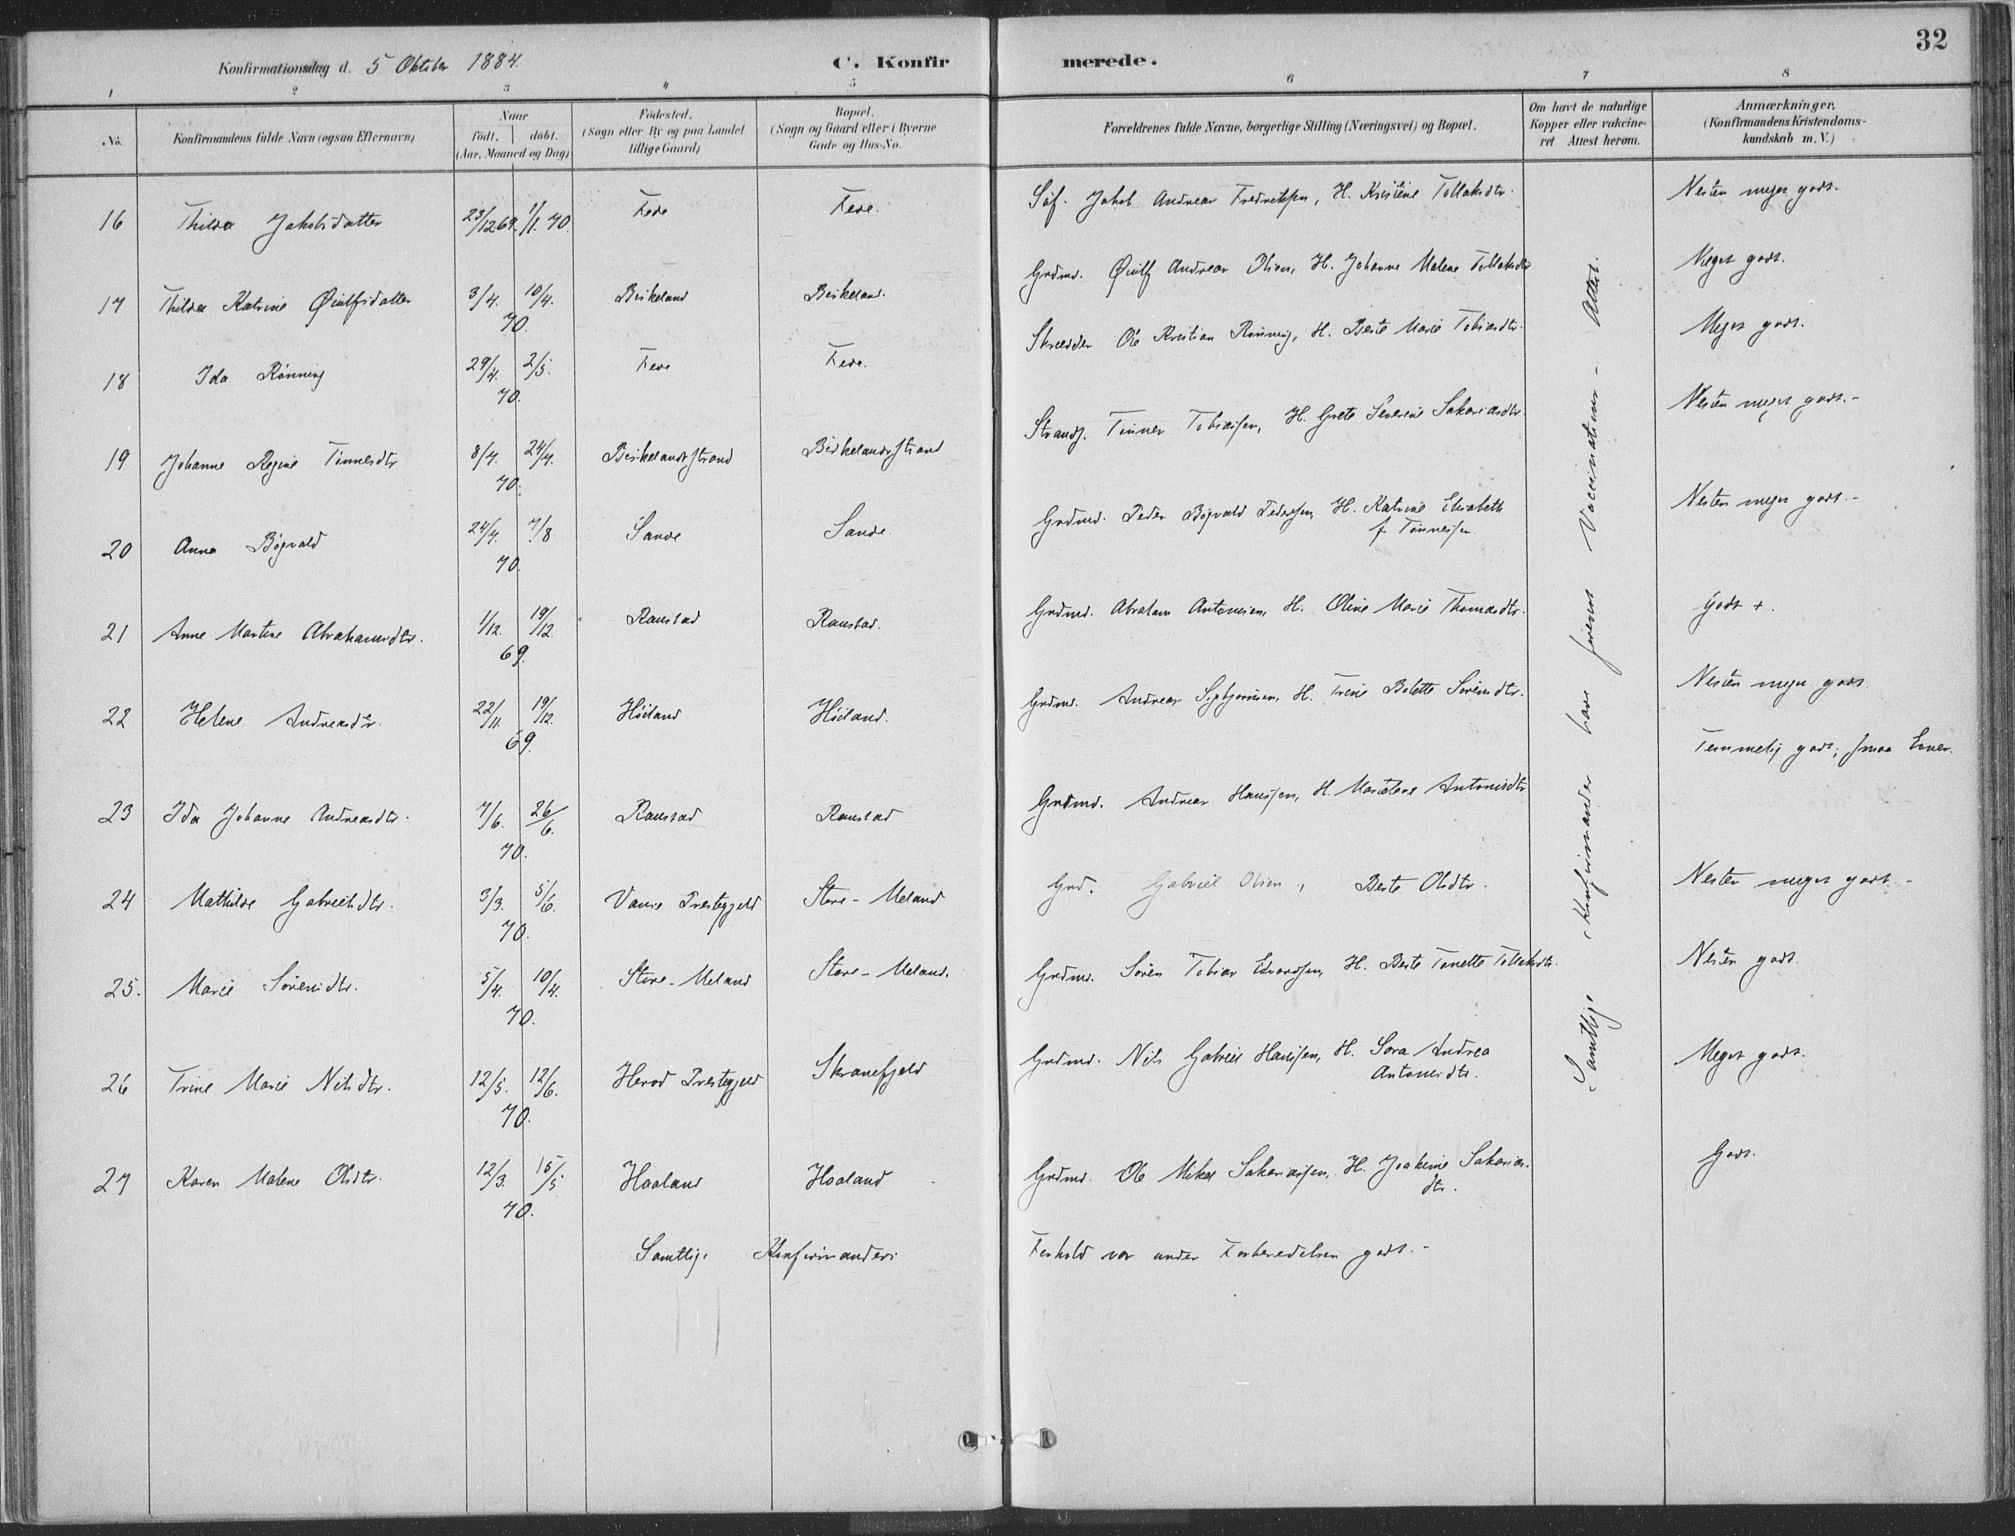 32
Konfirmationsdag d. 5 Oktober 1884.
C. Konfirmerede.
1 2 3 4 5 6 7 8
No. Konfirmandens fulde Navn (ogsaa Efternavn) Naar født. døbt. (Aar, Maaned og Dag) Fødested. (Sogn eller By og paa Landet tillige Gaard) Bopæl. (Sogn og Gaard eller i Byerne Gade og Hus-No. Forældrenes fulde Navne, borgerlige Stilling (Næringsvei) og Bopæl. Om havt de naturlige Kopper eller vakcineret Attest herom. Anmærkninger. (Konfirmandens Kristendomskundskab m. V.)
16 Thilda Jakobsdatter 23/12 69. 1/1. 70. Fede Fede. Søf. Jakob Andreas Fredriksen, H. Kristine Tollaksdtr. Nesten meget godt.
17 Thilda Katrine Øiulfsdatter 3/4. 10/4. 70. Birkeland Birkeland. Grdmd. Øiulf Andreas Olsen, H. Johanne Malene Tollaksdtr Meget godt.
18 Ida Rönning 29/4. 2/5. 70. Fede Fede. Skrædder Ole Kristian Rönning, H. Berte Marie Tobiasdtr. Meget godt.
19 Johanne Regine Tönnesdtr 8/7. 24/7. 70. Birkelandsstrand Birkelandsstrand Strands. Tönnes Tobiassen, H. Grete Severine Sakariasdtr. Nesten meget godt.-
20 Anna Bögvald 24/7. 7/8 70. Sande Sande. Grdmd. Peder Bögvald Pedersen, H. Katrine Elisabeth f. Tönnessen. Nesten meget godt.-
21 Anne Martine Abrahamsdtr. 1/12. 19/12. 69. Raustad Raustad. Grdmd. Abraham Antonsen, H. Oline Marie Thomasdtr. godt +.
22 Helene Andreasdtr. 22/11. 19/12. 69. Höiland Höiland. Grdmd. Andreas Sigbjørnsen, H. Trine Bolette Sörensdtr. Nesten meget godt.
23 Ida Johanne Andreasdtr. 7/6. 26/6. 70. Raustad Raustad Grdmd. Andreas Hanssen, H. Antonisdtr Temmelig godt, smaa Evner.
24 Mathilde Gabrielsdtr. 3/3. 5/6. 70. Vanse Prestegjeld Store-Meland Grd. Gabriel Olsen, Berte Olsdtr. Nesten meget godt.-
25. Marie Sörensdtr. 5/4. 10/4. 70. Store-Meland Store-Meland. Grdmd. Sören Tobias Edvardsen, H. Berte Tonette Tollaksdtr. Nesten godt.
26 Trine Marie Nilsdtr. 12/5. 12/6. 70. Herad Prestegjeld Skranefjeld Grdmd. Nils Gabriel Hanssen, H. Sara Andrea Antonisdtr. Meget godt.
27 Karen Malene Olsdtr. 12/3. 15/5 70. Haaland Haaland Grdmd. Ole Mikal Sakariassen, H. Joakime Sakariasdtr. Godt.
Samtlige Konfirmanders Forhold var under Forberedelsen godt.-
Samtlige Konfirmander have forevist Vaccinations-Attest.